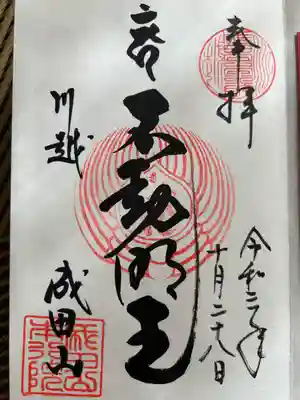 奉拝
令和二年
十月二十八日
不動明王
川越
成田山